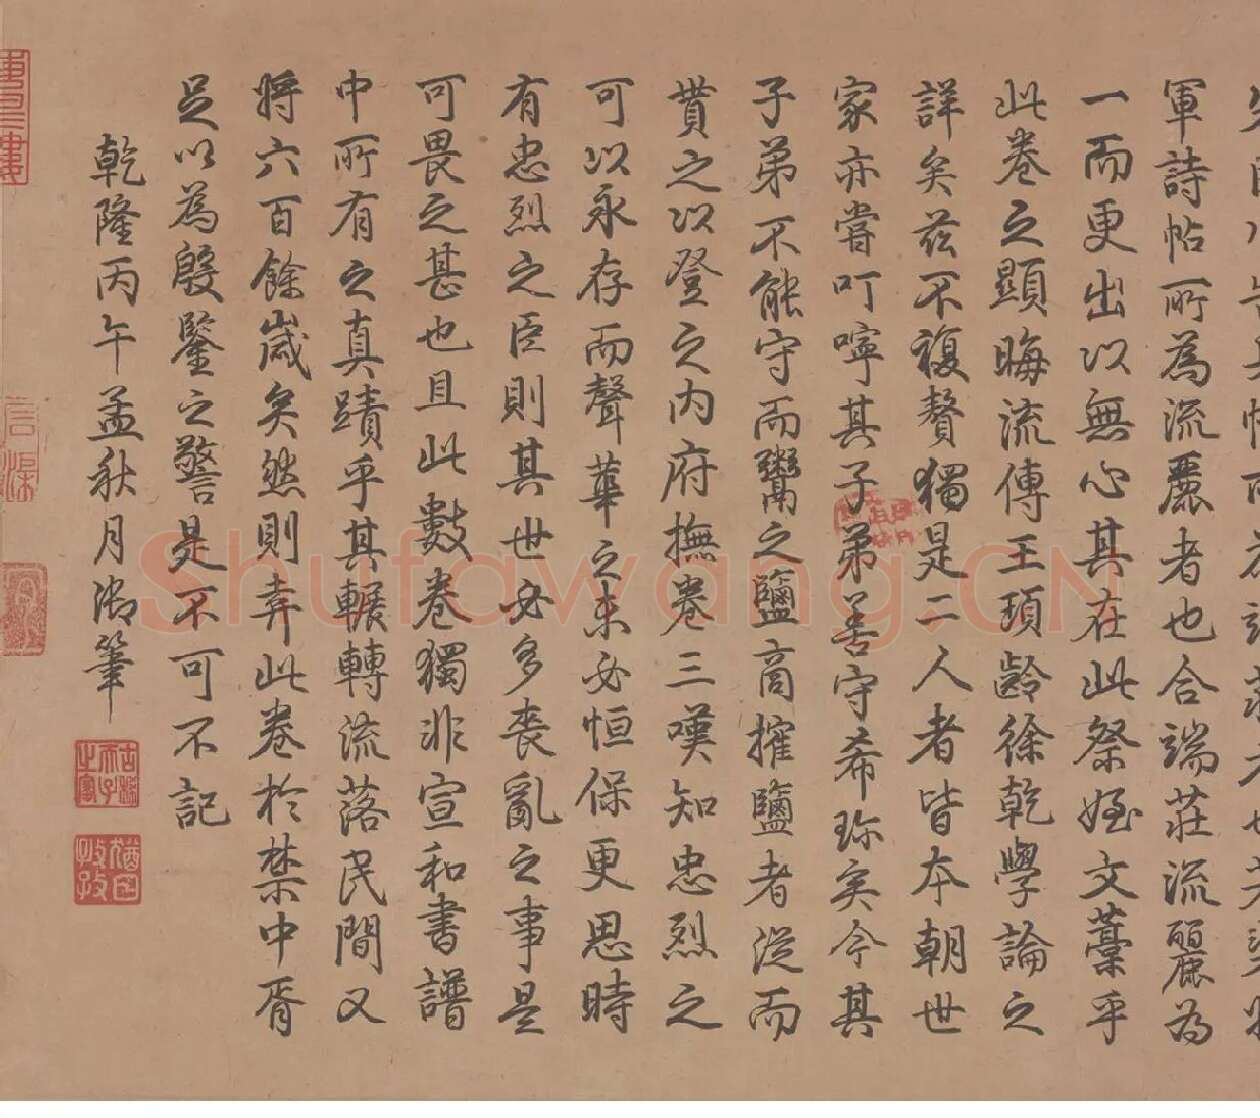 軍詩帖所為流麗者也合端莊流麗為
一而更出以無心其在此祭姪文藁乎
此卷之顯晦流傳王頊齡徐乾學論之
詳矣茲不複贅獨是二人者皆本朝世
家亦嘗叮嚀其子弟善守希珎矣今其
子弟不能守而鬻之鹽商搉鹽者從而
貰之以登之內府撫卷三嘆知忠烈之
可以永存而聲華之未必恒保更思時
有忠烈之臣則其世必多喪亂之事是
可畏之甚也且此數卷獨非宣和書譜
中所有之真蹟乎其輾轉流落民間又
將六百餘歲矣然則弆此卷於禁中胥
足以為殷鑒之警是不可不記
乾隆丙午孟秋月御筆
古稀天子之寶
猶日孜孜
Shufawang.CN